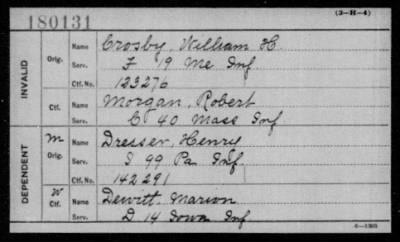 (3-H-4)
180131
INVALID
Orig.
Name Crosby, William H.
Serv. F 19 Me Inf
Ctf. No. 123276
Ctf.
Name Morgan, Robert
Serv. C 40 Mass Inf
DEPENDENT
M
Orig.
Name Dresser, Henry
Serv. I 99 Pa Inf
Ctf. No. 142291
W
Ctf.
Name Dewitt Marion
Serv. D 14 Iowa Inf